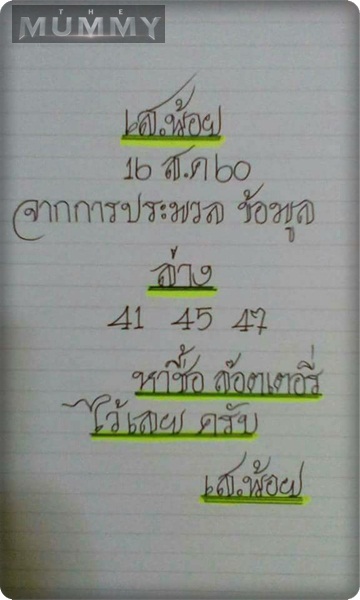 THE
MUMMY
เส.พ้อย
16 ส.ค 60
จากการประมวล ข้อมูล
ล่าง
41 45 47
หาซื้อ ล๊อตเตอรี่
ไว้เลย ครับ
เส.พ้อย